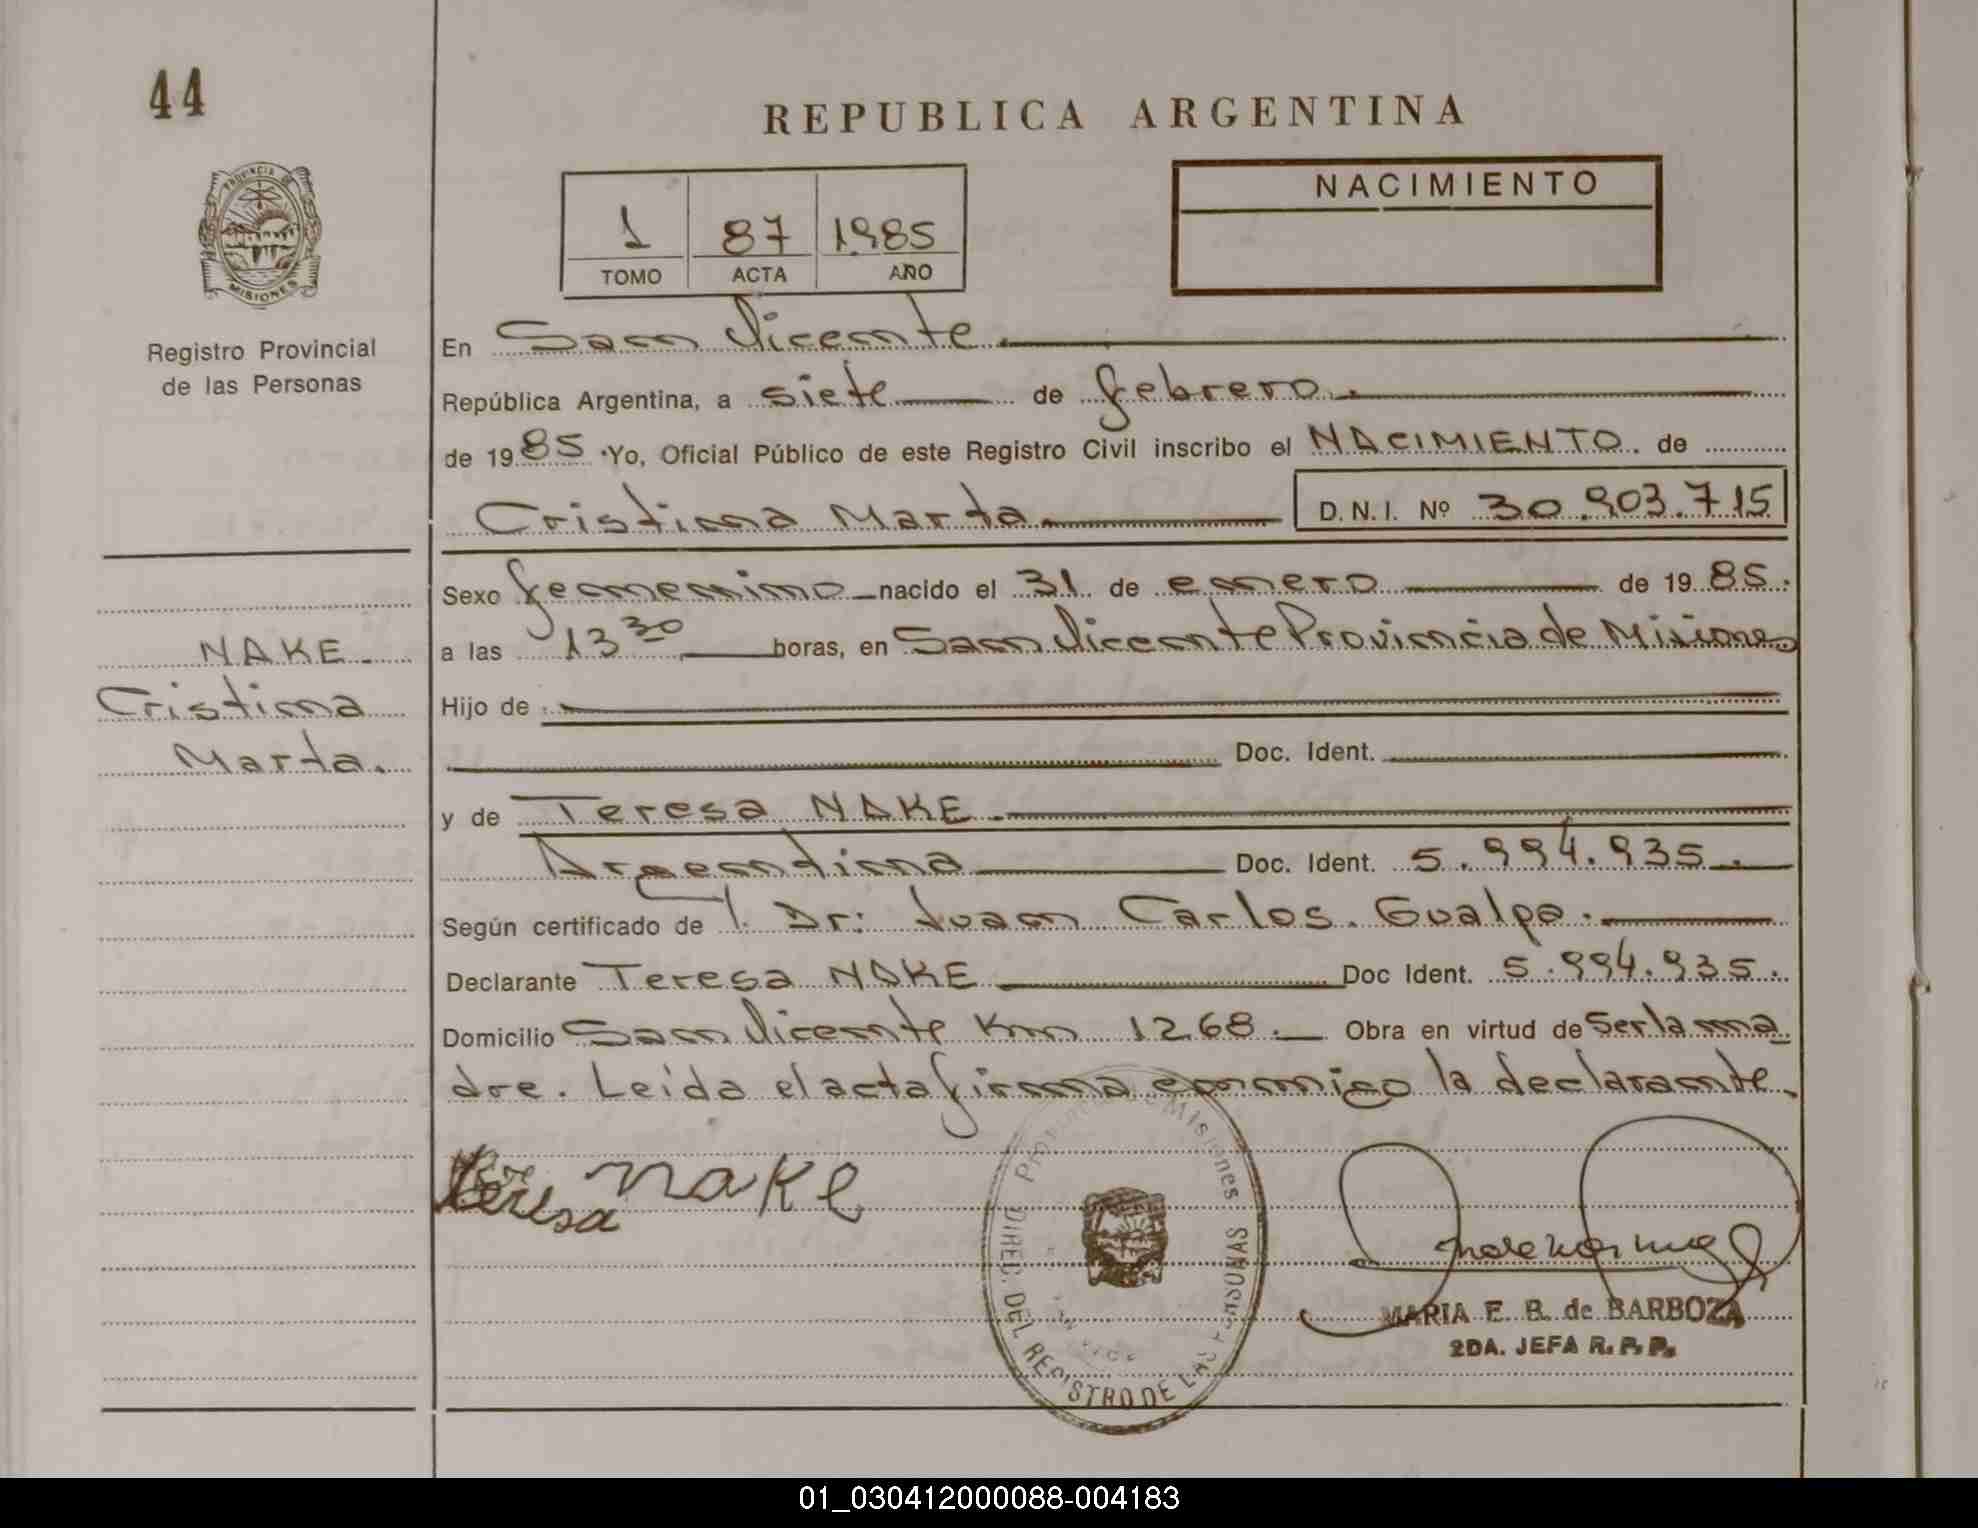 44
REPUBLICA ARGENTINA
PROVINCIA DE
MISIONES
Registro Provincial
de las Personas
1 87 1985
TOMO ACTA AÑO
NACIMIENTO
En San Vicente
República Argentina, a siete de febrero.
de 1985. Yo, Oficial Público de este Registro Civil inscribo el NACIMIENTO. de
Cristina Marta D.N.I. Nº 30.903.715
Sexo femenino nacido el 31 de enero de 1985.
a las 13 30 horas, en San Vicente Provincia de Misiones
NAKE
Cristina
Marta.
Hijo de
Doc. Ident.
y de Teresa NAKE
Argentina Doc. Ident. 5.994.935.
Según certificado de Dr: Juan Carlos. Gualpa.
Declarante Teresa NAKE Doc Ident. 5.994.935.
Domicilio San Vicente Km 1268. Obra en virtud de Ser la ma
dre. Leída el acta firma conmigo la declarante.
Teresa Nake
Provincia de Misiones
DIREC. DEL REGISTRO DE LAS PERSONAS
MARIA E. B. de BARBOZA
2DA. JEFA R. P. P.
01_030412000088-004183